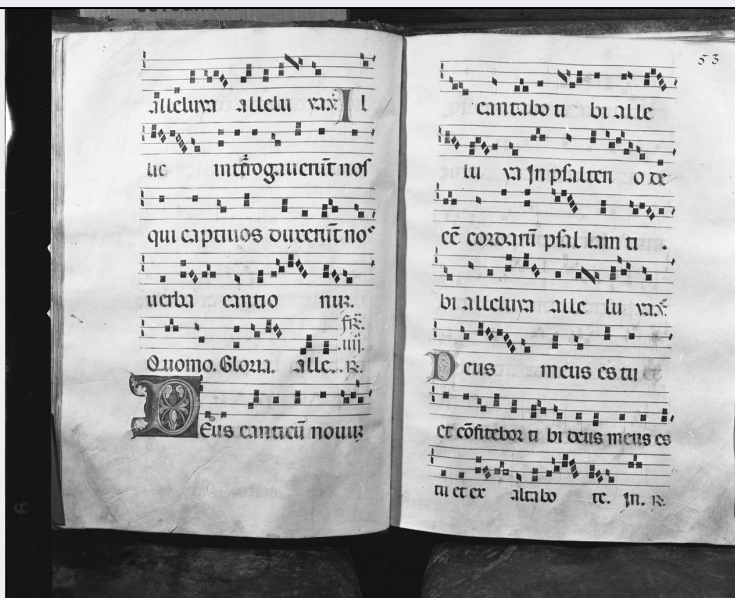 alleluya allelu yax̄ I l
lic interrogauerūt nos
qui captiuos duxerūt no⁹
uerba cantio nuꝝ.
fr̄. iiij.
Quomo. Gloria. alle. R.
Deus canticū nouuꝫ
53
cantabo ti bi alle
lu ya In psalteri o de
cē cordarū psal lam ti
bi alleluya alle lu yax̄.
Deus meus es tu et
et cōfitebor ti bi deus meus es
tu et ex altabo te. In. R.